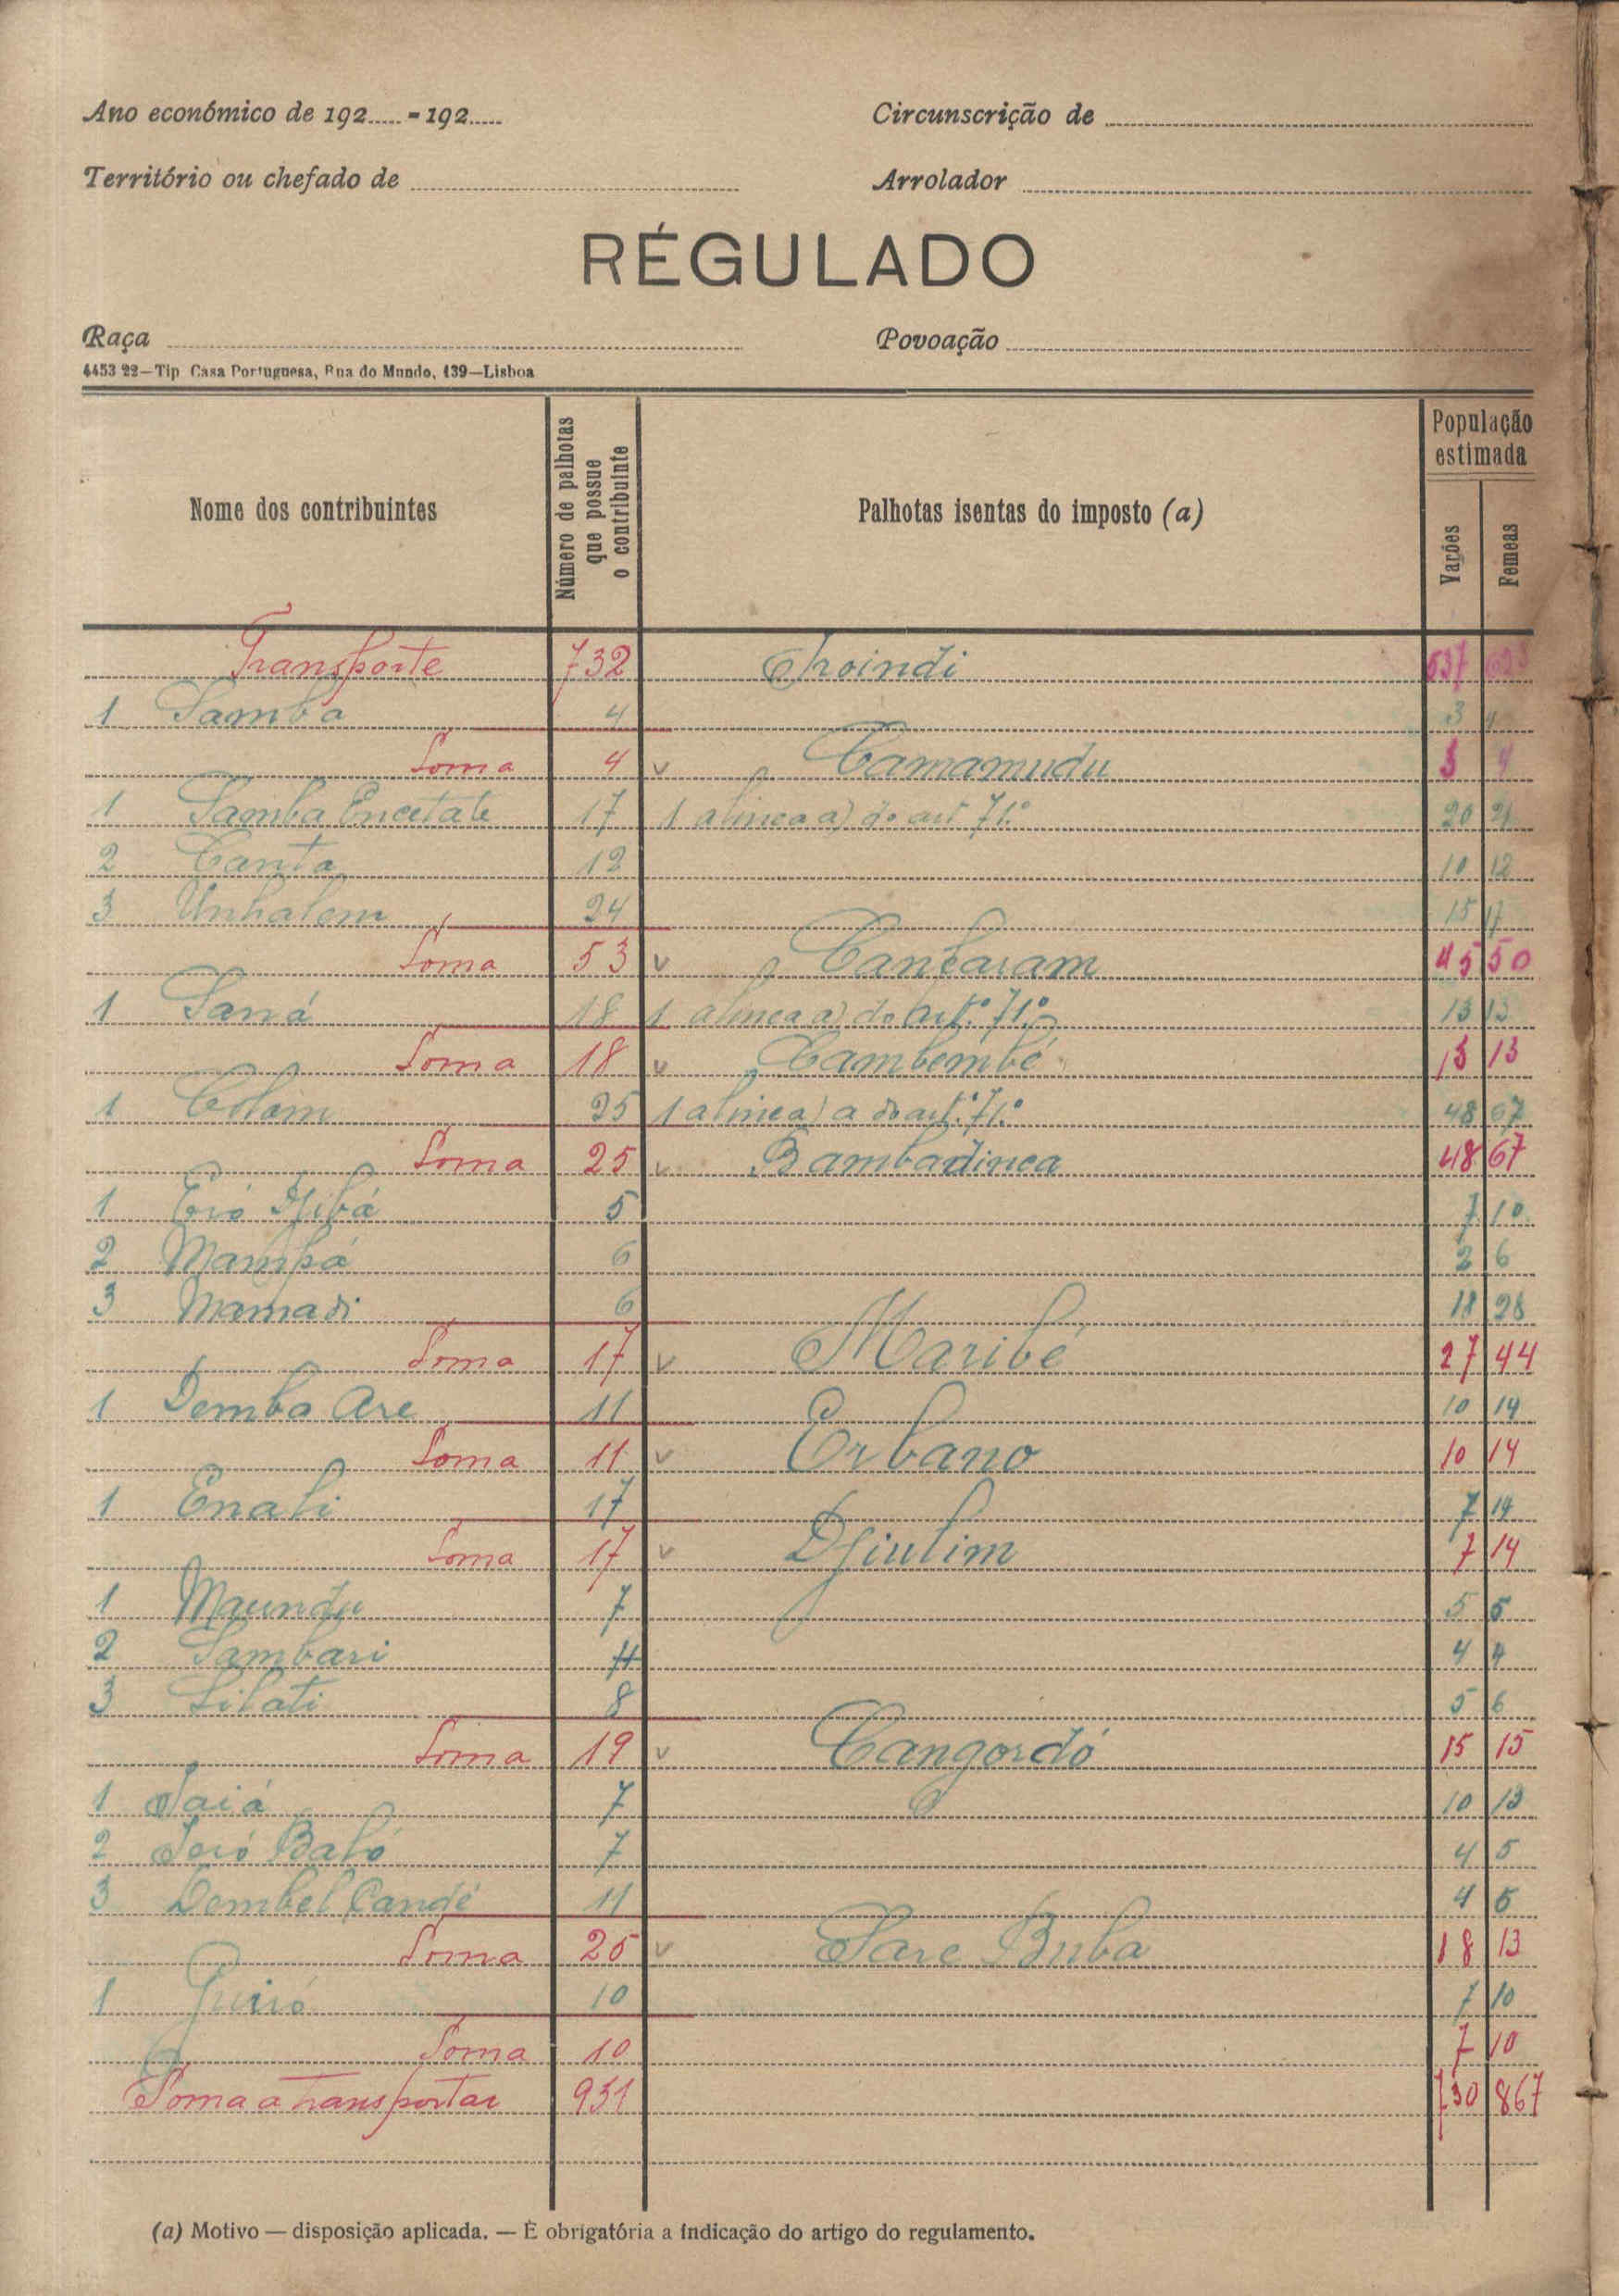 Ano económico de 192..... - 192.....
Circunscrição de
Território ou chefado de
Arrolador
RÉGULADO
Raça
Povoação
4453 22—Tip Casa Portuguesa, Rua do Mundo, 139—Lisboa
Nome dos contribuintes
Número de palhotas que possue o contribuinte
Palhotas isentas do imposto (a)
População estimada
Varões
Femeas
Transporte 732 537
1 Samba 4 3 4
Soma 4 v Camamudu 3 4
1 Samba Encetate 17 1 alinea a) do art 71.º 20 21
2 Canta 12 10 12
3 Unhalem 24 15 17
Soma 53 v 45 50
1 Saná 18 1 alinea a) do art.º 71.º 13 13
Soma 18 v Cambembé 13 13
1 Colom 25 1 alinea) a do art.º 71.º 48 67
Soma 25 v Bambadinca 48 67
1 5 7 10
2 6 2 6
3 Mamadi 6 18 28
Soma 17 v Maribé 27 44
1 Demba Are 11 10 14
Soma 11 v Erbano 10 14
1 Enali 17 7 14
Soma 17 v Djiulim 7 14
1 Maundu 7 5 5
2 Sambari 4 4 4
3 Silati 8 5 6
Soma 19 v Cangordó 15 15
1 Saiá 7 10 13
2 7 4 5
3 Dembel Candé 11 4 5
Soma 25 v Sare Buba 18 13
1 10 7 10
Soma 10 7 10
Soma a transportar 931 730 867
(a) Motivo — disposição aplicada. — É obrigatória a indicação do artigo do regulamento.